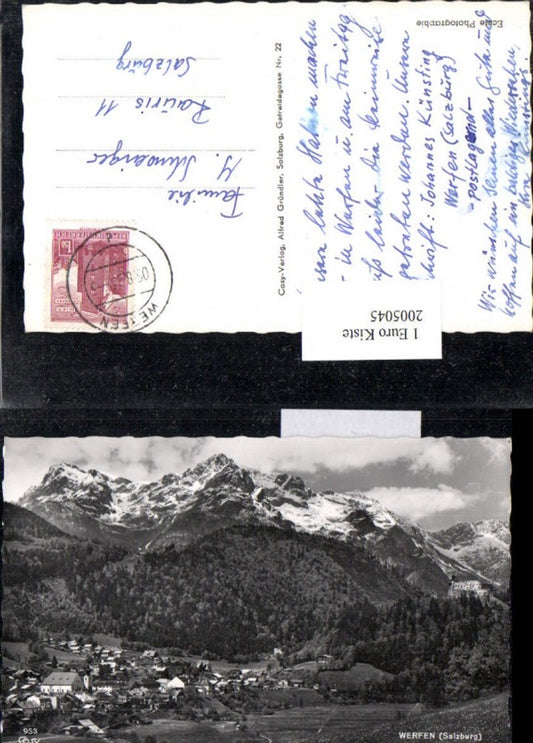 Echte Photographie
unsere letzte Station machen
in Werfen u. am Freitag
muß leider die Heimreise
getreten werden. Unsere
: Johannes Künsting
Werfen (Salzburg)
postlagernd
Wir wünschen Ihnen alles Gute und
hoffen auf ein baldiges Wiedersehen.
Cosy-Verlag, Alfred Gründler, Salzburg, Getreidegasse Nr. 22
Familie
M. Schwaiger
Rauris 11
Salzburg
WERFEN
1 Euro Kiste
2005045
953
Cosy
WERFEN (Salzburg)